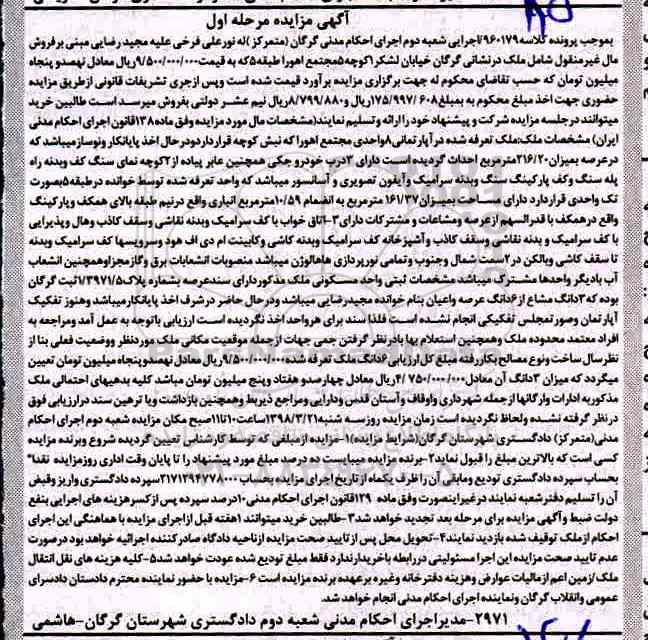 آگهی مزایده مرحله اول
بموجب پرونده کلاسه ۹۶۰۱۷۹/اجرایی شعبه دوم اجرای احکام مدنی گرگان (متمرکز) له نورعلی فرخی علیه مجید رضایی مبنی برفروش
مال غیرمنقول شامل ملک درنشانی گرگان خیابان لشکر۱کوچه۵مجتمع اهورا طبقه۵که به قیمت۹/۵۰۰/۰۰۰/۰۰۰ریال معادل نهصدو پنجاه
میلیون تومان که حسب تقاضای محکوم له جهت برگزاری مزایده برآورد قیمت شده است وپس ازجری تشریفات قانونی ازطریق مزایده
حضوری جهت اخذ مبلغ محکوم به بمبلغ۱۷۵/۹۹۷/۶۰۸ریال و۸/۷۹۹/۸۸۰ریال نیم عشر دولتی بفروش میرسد است طالبین خرید
میتوانند درجلسه مزایده شرکت و پیشنهاد خود را ارائه و تسلیم نمایند(مشخصات مال مورد مزایده وفق ماده۱۳۸قانون اجرای احکام مدنی
ایران) مشخصات ملک:ملک تعرفه شده در آپارتمانی۸واحدی مجتمع اهورا که نبش کوچه قرارداردودرحال اخذ پایانکار ونوسازمیباشد که
درعرصه بمیزان۲۱۶/۲۰مترمربع احداث گردیده است دارای ۲درب خودرو جکی همچنین عابر پیاده از۲کوچه نمای سنگ کف وبدنه راه
پله سنگ وکف پارکینگ سنگ وبدنه سرامیک وآیفون تصویری و آسانسور میباشد که واحد تعرفه شده توسط خوانده درطبقه۵بصورت
تک واحدی قرارداردد دارای مساحت بمیزان۱۶۱/۳۷ مترمربع به انضمام ۱۰/۵۹مترمربع انباری واقع درنیم طبقه بالای همکف وپارکینگ
واقع درهمکف با قدرالسهم ازعرصه ومشاعات و مشترکات دارای۳اتاق خواب با کف سرامیک وبدنه نقاشی وسقف کاذب وهال وپذیرایی
با کف سرامیک و بدنه نقاشی وسقف کاذب و آشپزخانه کف سرامیک وبدنه کاشی وکابینت ام دی اف هود وسرویسها کف سرامیک وبدنه
تا سقف کاشی وبالکن در۲سمت شمال وجنوب و تمامی نورپردازی هاهالوژن میباشد منصوبات انشعابات برق وگازمجزاوهمچنین انشعاب
آب بادیگر واحدها مشترک میباشد مشخصات ثبتی واحد مسکونی ملک مذکوردارای سندعرصه بشماره پلاک۱/۳۹۷۱/۵ثبت گرگان
بوده که۳دانگ مشاع از۶دانگ عرصه واعیان بنام خوانده مجیدرضایی میباشد ودرحال حاضر درشرف اخذ پایانکارمیباشد وهنوز تفکیک
آپارتمان وصورتمجلس تفکیکی انجام نشده است فلذا سند برای هرواحد اخذ نگردیده است ارزیابی باتوجه به عمل آمد ومراجعه به
افراد معتمد محدوده ملک وهمچنین استعلام بها بادرنظر گرفتن جمی جهات ازجمله موقعیت مکانی ملک موردنظر ووضعیت فعلی بنا از
نظرسال ساخت ونوع مصالح بکاررفته مبلغ کل ارزیابی۶دانگ ملک تعرفه شده۹/۵۰۰/۰۰۰/۰۰۰ریال معادل نهصدوپنجاه میلیون تومان تعیین
میگردد که میزان ۳دانگ آن معادل۴/۷۵۰/۰۰۰/۰۰۰ریال معادل چهارصدو هفتاد وپنج میلیون تومان مباشد کلیه بدهیهای احتمالی ملک
مذکوربه ادارات وارگانها ازجمله شهرداری واوقاف وآستان قدس ودارایی ومراجع ذیربط وهمچنین بازداشت ویا ترهین سند درارزیابی فوق
درنظر گرفته نشده ولحاظ نگردیده است زمان مزایده روزسه شنبه۱۳۹۸/۳/۲۱ساعت۱۰تا۱۱صبح مکان مزایده شعبه دوم اجرای احکام
مدنی(متمرکز) دادگستری شهرستان گرگان(شرایط مزایده)۱-مزایده ازمبلغی که توسط کارشناس تعیین گردیده شروع وبرنده مزایده
کسی است که بالاترین مبلغ را قبول نماید۲-برنده مزایده میبایست ده درصد مبلغ مورد پیشنهاد را تا پایان وقت اداری روزمزایده نقدا"
بحساب سپرده دادگستری تودیع ومابقی آن را ظرف یکماه از تاریخ اجرای مزایده بحساب ۲۱۷۱۲۹۴۷۷۸۰۰۰سپرده دادگستری واریز وقبض
آن را تسلیم دفترشعبه نمایند درغیراینصورت وفق ماده ۱۲۹قانون اجرای احکام مدنی۱۰درصد سپرده پس ازکسرهزینه های اجرایی بنفع
دولت ضبط وآگهی مزایده برای مرحله بعد تجدید خواهد شد۳-طالبین خرید میتوانند ۱هفته قبل ازاجرای مزایده با هماهنگی این اجرای
احکام ازملک توقیف شده بازدید نمایند۴-تحویل محل پس ازتایید صحت مزایده ازناحیه دادگاه صادرکننده اجرائیه خواهد بود درصورت
عدم تایید صحت مزایده این اجرا مسئولیتی دررابطه باخریدارندارد فقط مبلغ تودیع شده عودت خواهد شد۵-کلیه هزینه های نقل انتقال
ملک ازمین اعم ازمالیات عوارض وهزینه دفترخانه وغیره برعهده برنده مزایده است ۶-مزایده با حضور نماینده محترم دادستان دادسرای
عمومی وانقلاب گرگان ونماینده اجرای احکام مدنی انجام خواهد شد.
۲۹۷۱-مدیراجرای احکام مدنی شعبه دوم دادگستری شهرستان گرگان-هاشمی